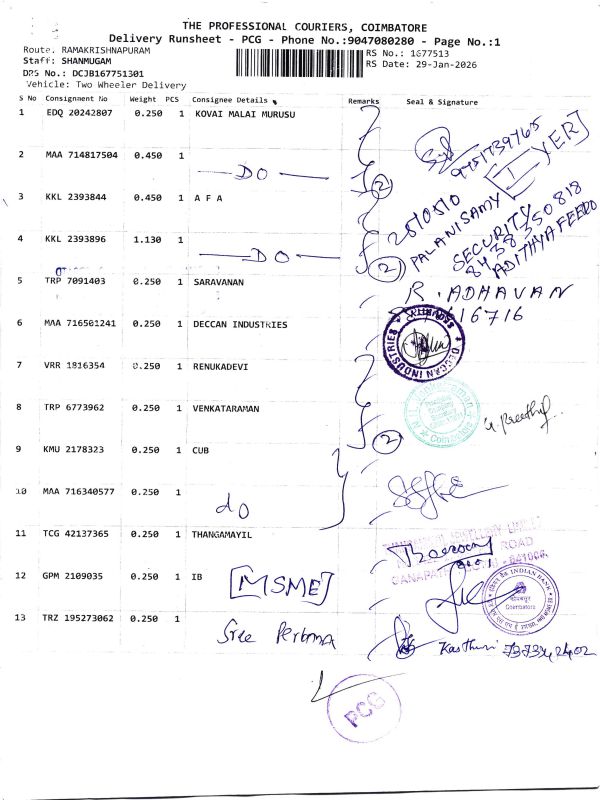 THE PROFESSIONAL COURIERS, COIMBATORE
Delivery Runsheet - PCG - Phone No.:9047080280 - Page No.:1
Route: RAMAKRISHNAPURAM
RS No.: 1677513
Staff: SHANMUGAM
RS Date: 29-Jan-2026
DRS No.: DCJB167751301
Vehicle: Two Wheeler Delivery
S No Consignment No Weight PCS Consignee Details Remarks Seal & Signature
1 EDQ 20242807 0.250 1 KOVAI MALAI MURUSU
9751739765
2 MAA 714817504 0.450 1
DO
(2)
[I-YER]
3 KKL 2393844 0.450 1 A F A
2510510
PALANISAMY
SECURITY
8438350818
4 KKL 2393896 1.130 1
DO
(2)
ADITHYA FEERO
5 TRP 7091403 0.250 1 SARAVANAN
R. ADHAVAN
16716
6 MAA 716501241 0.250 1 DECCAN INDUSTRIES
DECCAN INDUSTRIES
7 VRR 1816354 0.250 1 RENUKADEVI
8 TRP 6773962 0.250 1 VENKATARAMAN
(2)
Coimbatore
9 KMU 2178323 0.250 1 CUB
10 MAA 716340577 0.250 1
do
11 TCG 42137365 0.250 1 THANGAMAYIL
ROAD
12 GPM 2109035 0.250 1 IB
[MSME]
INDIAN BANK
Coimbatore
13 TRZ 195273062 0.250 1
Sree
Kasthuri
PCG